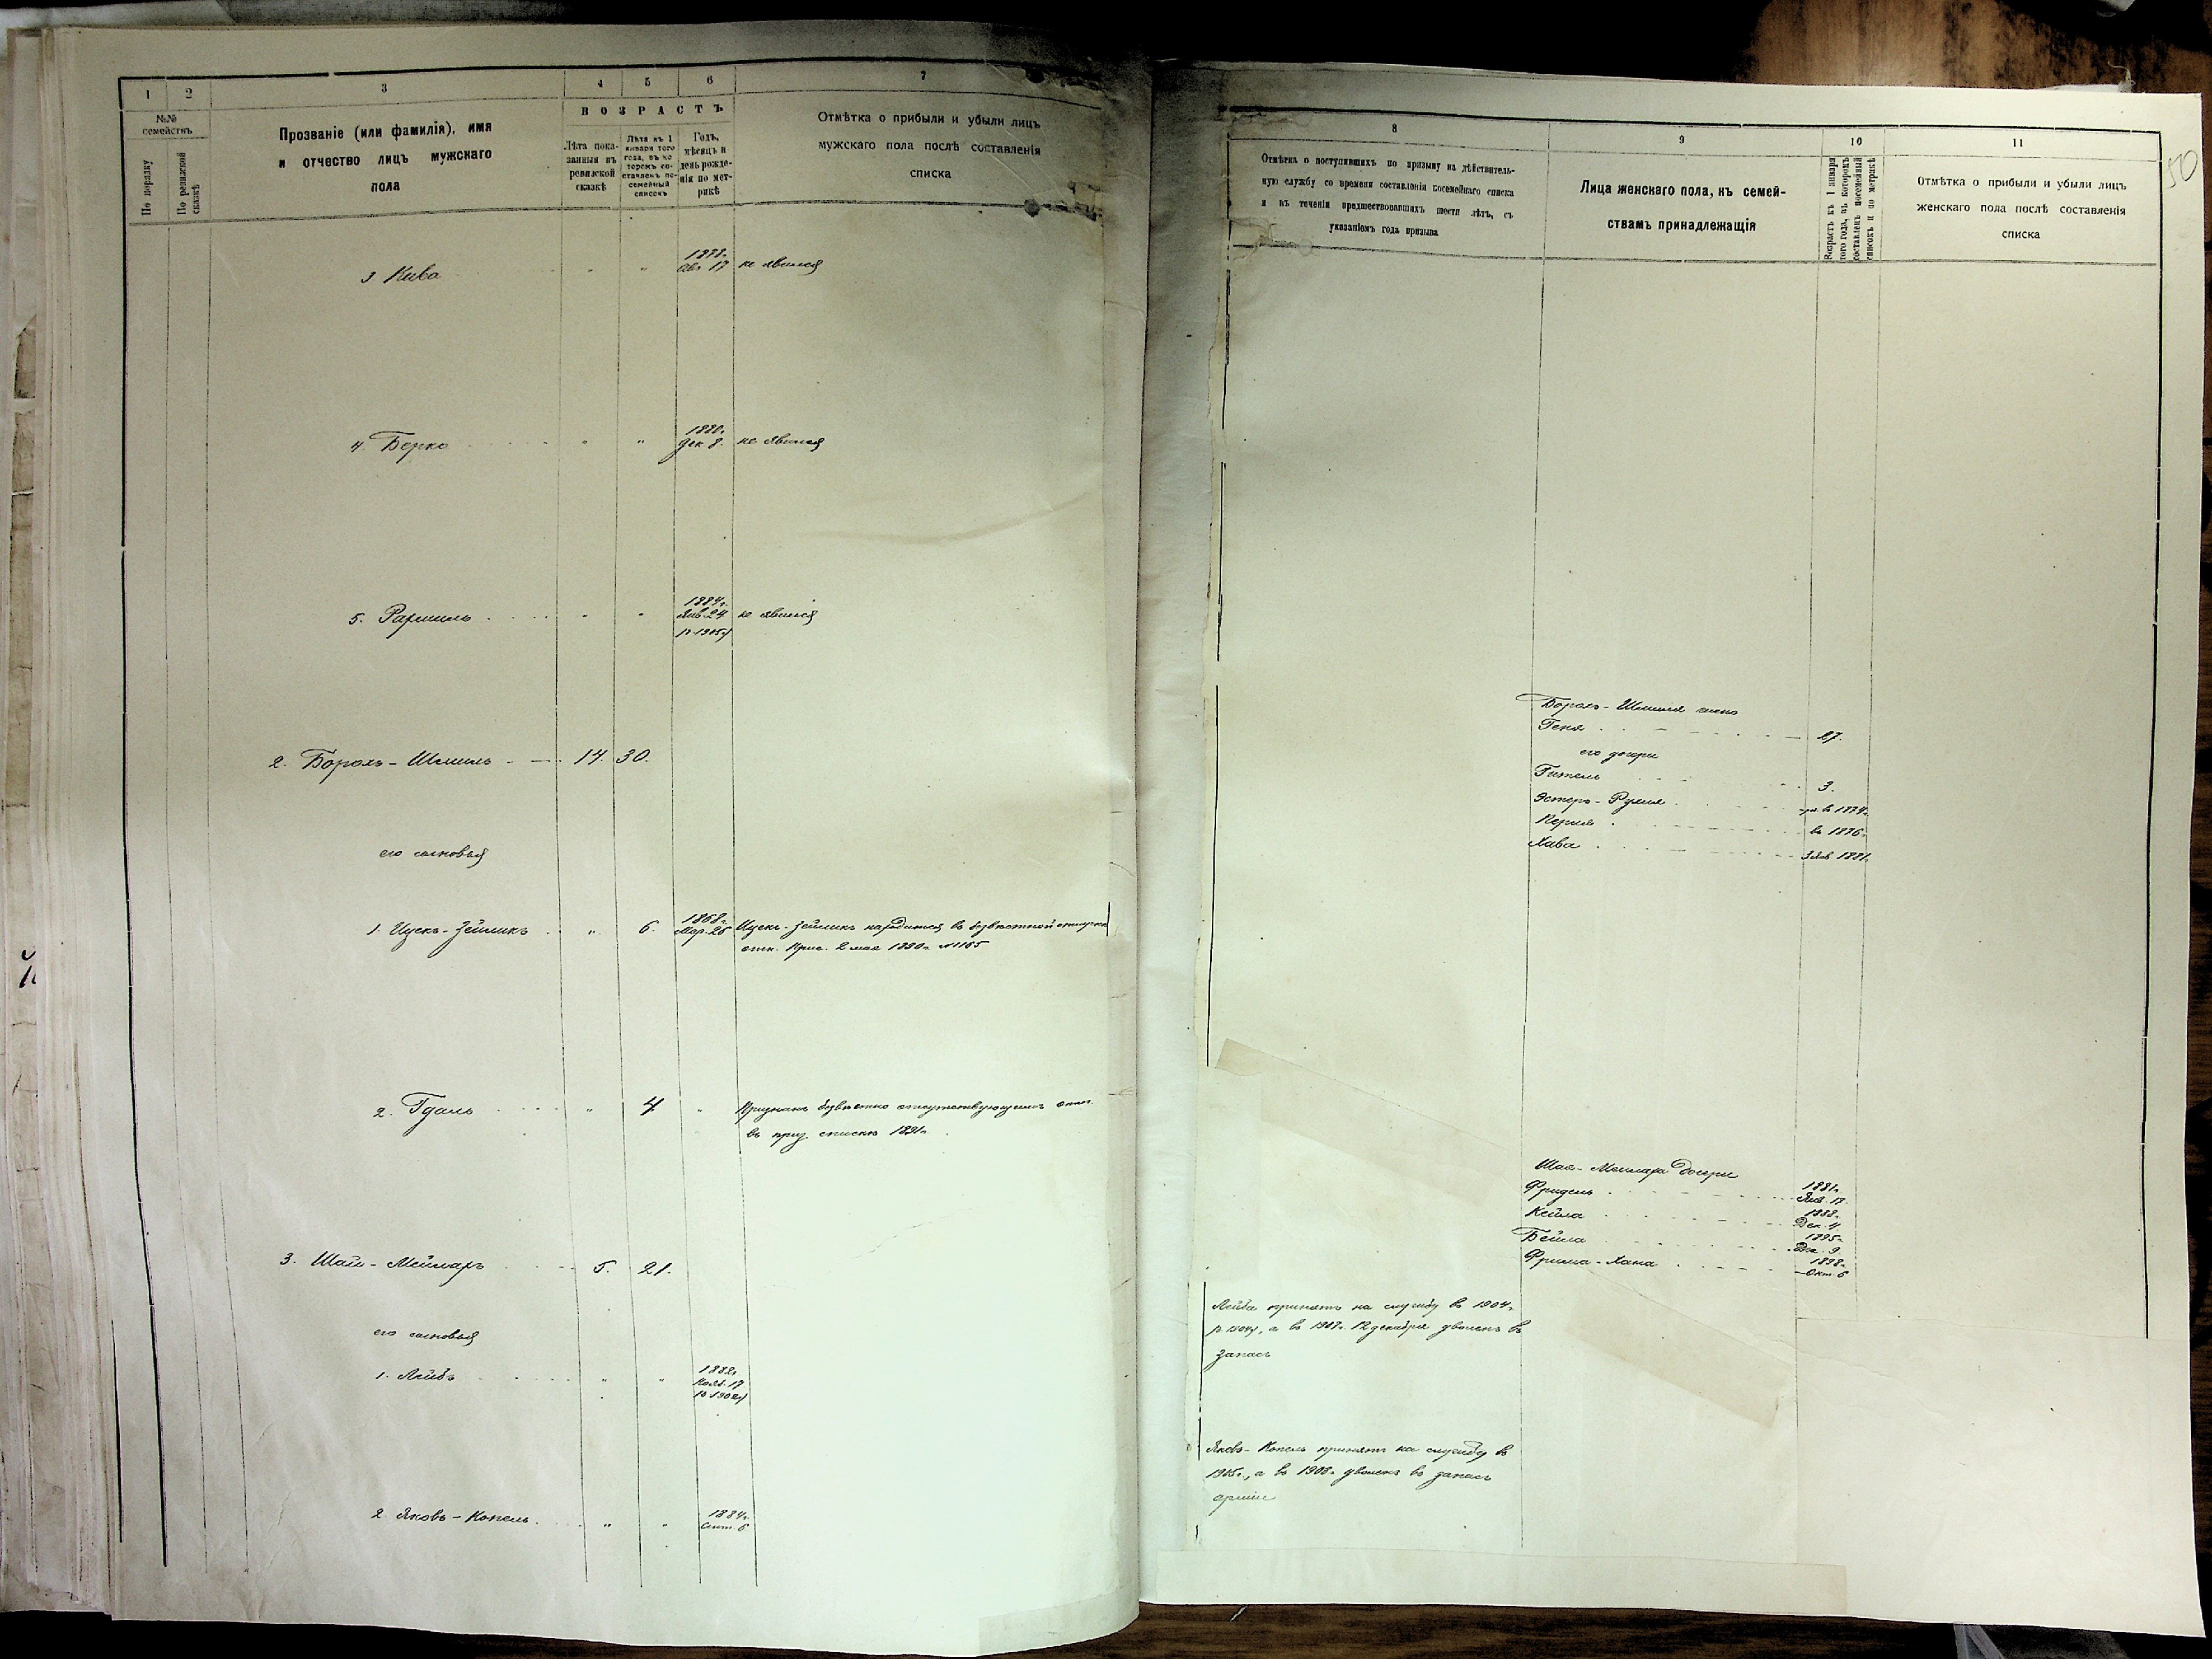 1 2 3 4 5 6 7
№№ семействъ
По порядку
По ревизской сказкѣ
Прозваніе (или фамилія), имя
и отчество лицъ мужскаго
пола
ВОЗРАСТЪ
Лѣта пока-
занныя въ
ревизской
сказкѣ
Лѣта къ 1
января того
года, въ ко-
торомъ со-
ставленъ по-
семейный
списокъ
Годъ,
мѣсяцъ и
день рожде-
нія по мет-
рикѣ
Отмѣтка о прибыли и убыли лицъ
мужскаго пола послѣ составленія
списка
3 Кива " " 1878г. Авг 17 не явился
4. Берко " " 1880г. Дек 8. не явился
5. Рахмиль " " 1884г. Янв. 24 не явился
2. Борохъ-Шмиль 14. 30.
его сыновья
1. Ицекъ-Зейликъ " 6. 1868г. Мар. 26 Ицекъ-Зейликъ находится въ безвѣстной отлучкѣ
2 мая 1890г. №1165
2. Гдаль " 4. " Признанъ безвѣстно отсутствующимъ
въ приз. списокъ 1891г.
3. Шая-Меймахъ 5. 21.
его сыновья
1. Лейбъ " " 1882г.
Нояб. 17
2 Яковъ-Копель " " 1884г.
Сент. 6
8 9 10 11
50
Отмѣтка о поступившихъ по призыву на дѣйствитель-
ную службу со времени составленія посемейнаго списка
и въ теченіи предшествовавшихъ шести лѣтъ, съ
указаніемъ года призыва
Лица женскаго пола, къ семей-
ствамъ принадлежащія
Возрастъ къ 1 января
того года, въ которомъ
составленъ посемейный
списокъ и по метрикѣ
Отмѣтка о прибыли и убыли лицъ
женскаго пола послѣ составленія
списка
Борохъ-Шмиля жена
Геня 27.
его дочери
Гитель 3.
Эстеръ-Рухля въ 1874г.
Перля въ 1876г.
Хава 1881г.
Шая-Меймаха дочери
Фридель 1881г. Янв. 17.
Кейла 1888г. Дек. 4
Бейла 1895г. Дек. 9
Фрима-Хана 1898г. Окт. 6
Лейба принятъ на службу въ 1904г.
а въ 1907г. 12 декабря уволенъ въ
запасъ
Яковъ-Копель принятъ на службу въ
1905г., а въ 1908г. уволенъ въ запасъ
арміи